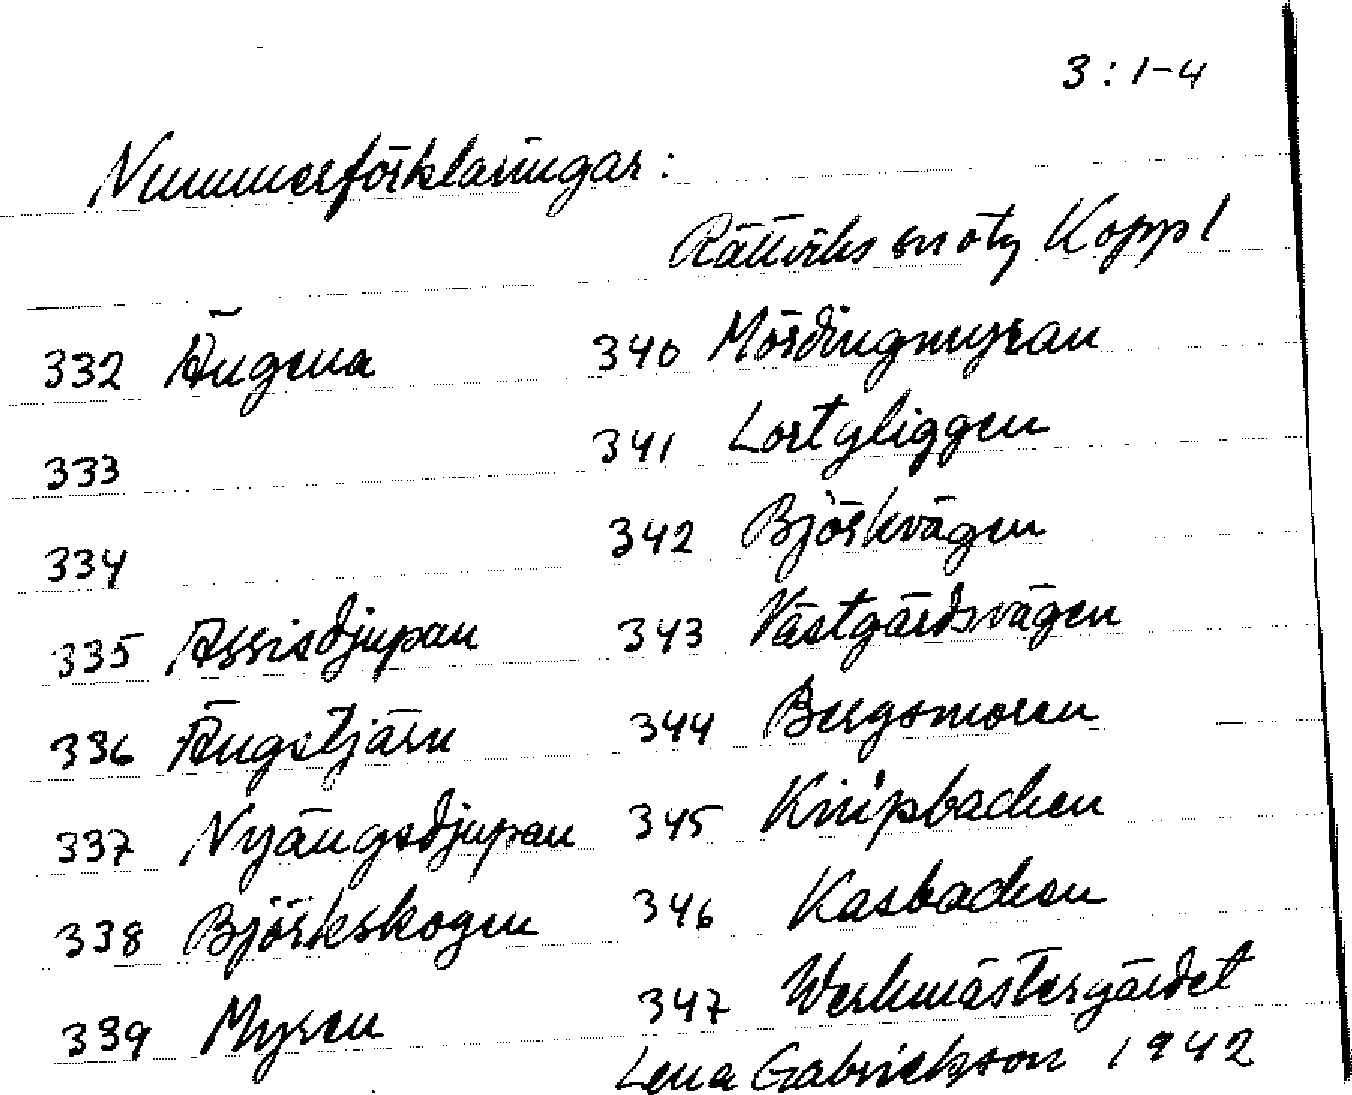 3:1-4
Nummerförklaringar:
Rättviks sn Kopp l
332 Ängena
333
334
335 Assisdjupan
336 Ängstjärn
337 Nyängsdjupan
338 Björkskogen
339 Myren
340 Mördingmyran
341
342 Björkvägen
343 Västgärdsvägen
344 Bergsmoren
345 Knipbacken
346 Kasbacken
347 Werkmästergärdet
Lena Gabrielsson 1942